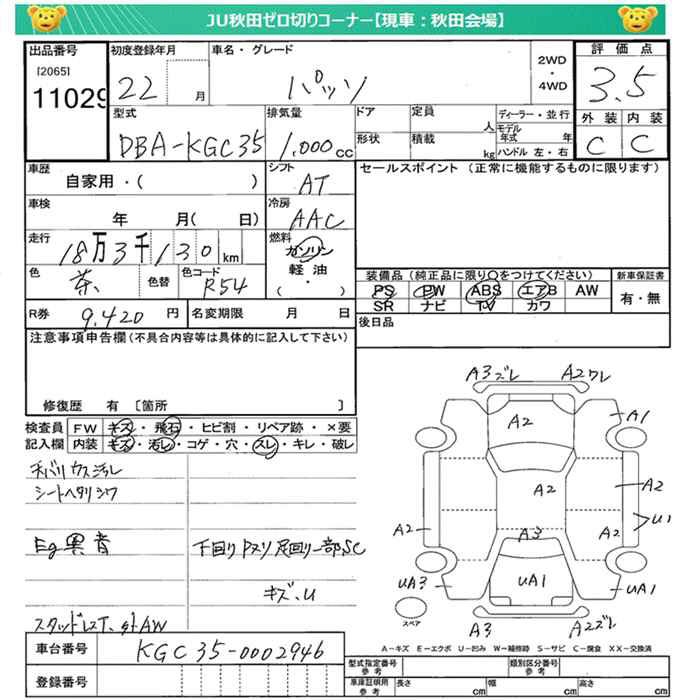 JU秋田ゼロ切りコーナー【現車：秋田会場】
出品番号 初度登録年月 車名・グレード 2WD・4WD 評価点
[2065] 22 月 パッソ 3.5
11029
型式 排気量 ドア 定員 人 ディーラー・並行 外装 内装
DBA-KGC35 1.000cc 形状 積載 kg モデル年式 年 C C
ハンドル 左・右
車歴 シフト セールスポイント (正常に機能するものに限ります)
自家用・( ) AT
車検 冷房
年 月( 日) AAC
走行 燃料
18万3千130km ガソリン
軽油
・( )
色 色替 色コード 装備品 (純正品に限り○をつけてください) 新車保証書
茶 R54 PS PW ABS エアB AW 有・無
SR ナビ TV カワ
R券 9,420円 名変期限 月 日 後日品
注意事項申告欄 (不具合内容等は具体的に記入して下さい)
修復歴 有 [箇所 ]
検査員 FW キズ・飛石・ヒビ割・リペア跡・×要
記入欄 内装 キズ・汚レ・コゲ・穴・スレ・キレ・破レ
チバリ ウス汚レ
シートヘタリ シワ
Eg異音 下回りPスリ 足回り一部SC
キズ、U
スタッドレスT、社外AW
A3ズレ A2ワレ
A2 A1
A2 A2
U1
A2 A3 A2
UA3 UA1 UA1
スペア
A3 A2ズレ
A－キズ E－エクボ U－凹ミ W－補修跡 S－サビ C－腐食 XX－交換済
車台番号 KGC35-0002946
登録番号
型式指定番号 参考 類別区分番号 参考
車庫証明用 参考 長さ cm 幅 cm 高さ cm